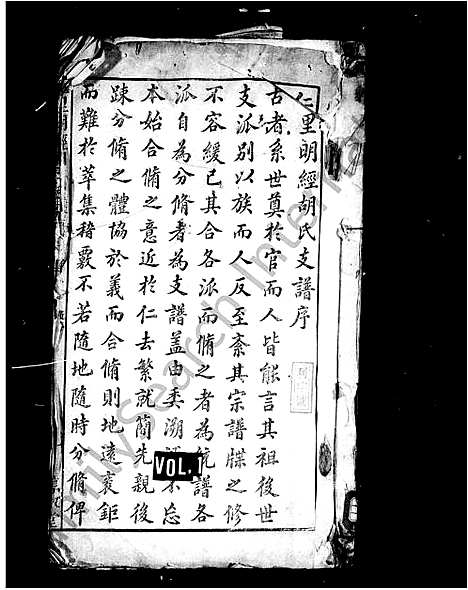 仁里明經胡氏支譜序
古者系世奠於官而人皆能言其祖後世
支派別以族而人反至紊其宗譜牒之修
不容緩已其合各派而脩之者為統譜各
派自為分脩者為支譜蓋由委溯不忘
本始合脩之意近於仁去繁就簡先親後
踈分脩之體協於義而合脩則地遠袤鉅
而難於萃集稽覈不若隨地隨時分脩俾
VOL. 1
FamilySearch International